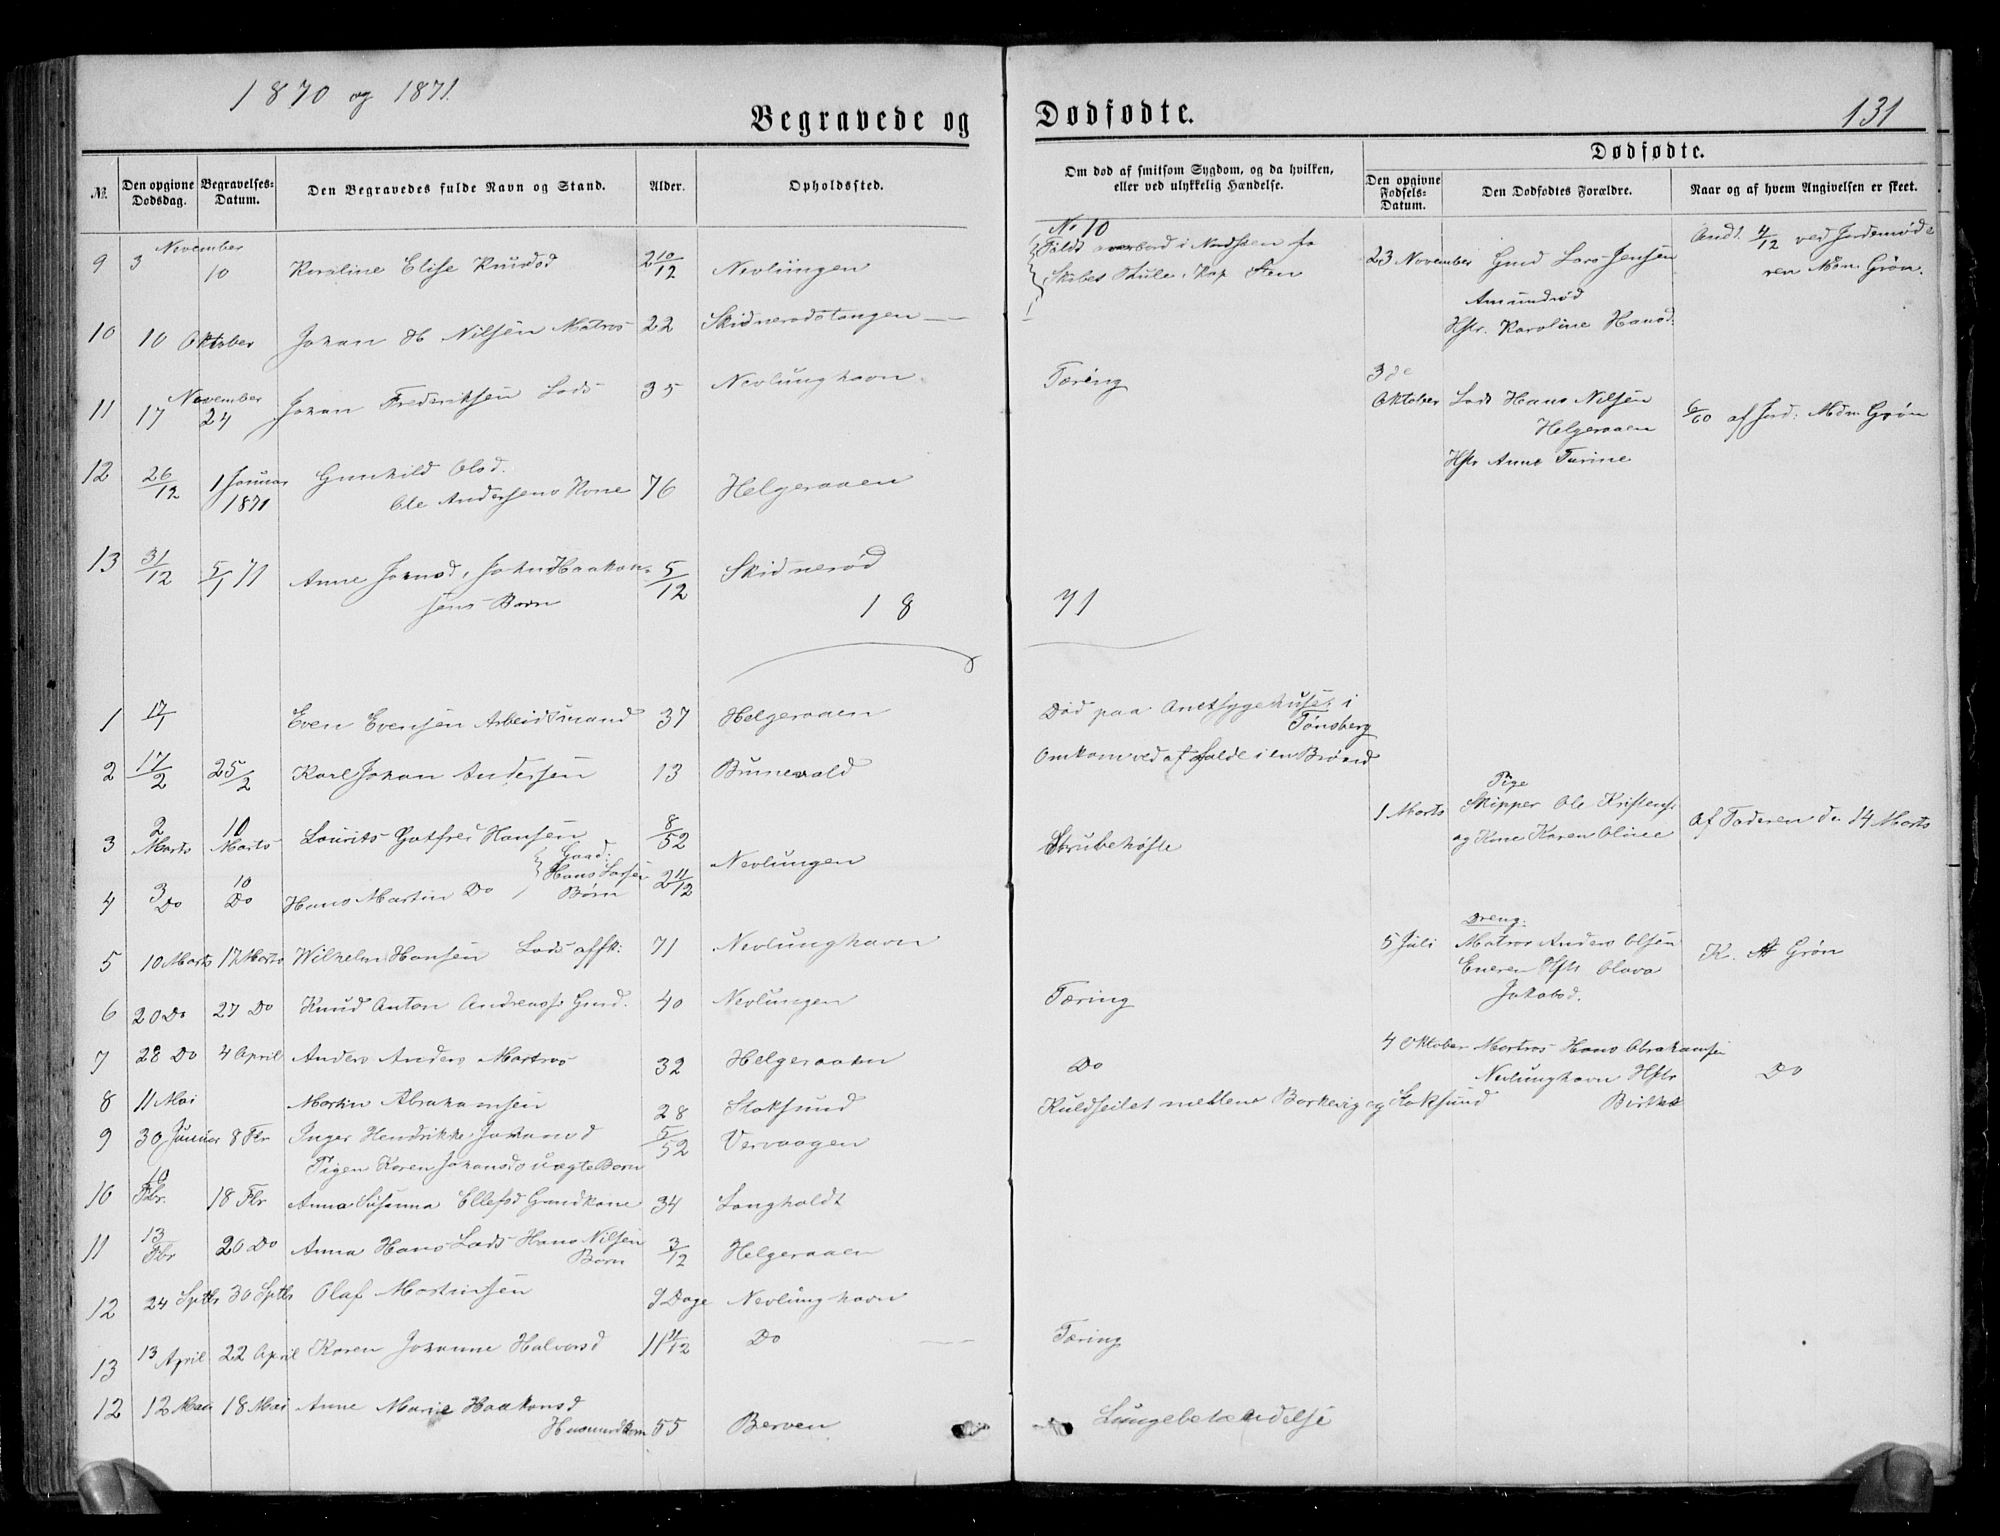 1870 og 1871.
Begravede og
№.
Den opgivne Dødsdag.
Begravelses-Datum.
Den Begravedes fulde Navn og Stand.
Alder.
Opholdssted.
9 3 November 10 Karoline Elise Knusd 2 10/12 Nevlungen
10 10 Oktober Johan H Nilsen Matros 22 Skidnerødstangen
11 17 November 24 Johan Frederiksen Lods 35 Nevlunghavn
12 26/12 1 Januar 1871 Gunhild Olsd. 76 Helgeraaen
Ole Andersens Kone
13 31/12 5/1 71 Anne Johnsd, John Haakon- 5/12 Skidnerød
sens Barn
18
1 17/1 Even Evensen Arbeidsmand 37 Helgeraaen
2 17/2 25/2 Karl Johan Andersen 13 Brunevald
3 2 Marts 10 Marts Laurits Gotfred Hansen 8/52
Gaad: Hans Larsen Børn
Nevlungen
4 3 Do 10 Do Hans Martin Do 2 11/12
5 10 Marts 17 Marts Wilhelm Hansen Lods affsk: 71 Nevlunghavn
6 20 Do 27 Do Knud Anton Andreass Gmd. 40 Nevlungen
7 28 Do 4 April Anders Anders Martros 32 Helgeraaen
8 11 Mai Martin Abrahamsen 28 Stoksund
9 30 Januar 8 Fbr Inger Hendrikke Johansd 5/52 Vervaagen
Pigen Karen Johansds uægte Barn
10 10 Fbr. 18 Fbr Anna Susanna Ellefsd Gaardkone 34 Langholdt
11 13 Fbr 20 Do Anna Hans Lods Hans Nilsen 3/12 Helgeraaen
Barn
12 24 Sptbr 30 Sptbr Olaf Martinsen 9 Dage Nevlunghavn
13 13 April 22 April Karen Johanne Halvorsd 11 4/12 Do
12 12 Mai 18 Mai Anne Marie Haakonsd
55 Berven
Dødfødte.
131
Om død af smitsom Sygdom, og da hvilken, eller ved ulykkelig Hændelse.
Dødfødte.
Den opgivne Fødsels-Datum.
Den Dødfødtes Forældre.
Naar og af hvem Angivelsen er skeet.
No 10
Faldt overbord i Nordsøen fra
Skibet Thule, Kap Sten
23 November Gmd Lars Jensen
Amundrød
Hstr. Karoline Hansd:
Andt. 4/12 ved Jordemode
ren Mdm Grøn.
Tæring
3 de Oktober Lods Hans Nilsen
Helgeraaen
Hstr Anne Turine
af Jord: Mdm Grøn
71
Død paa Amtssygehuset i
Tønsberg
Omkom ved at falde i en Brønd
Pige
1 Marts Skipper Ole Kristens.
og Kone Karen Oline
Af Faderen den 14 Marts
Strubehoste
Dreng.
5 Juli Matros Anders Olsen
Eneren Hstr Olava
Jakobsd.
K. A Grøn
Tæring
Do
4 Oktober Martros Hans Abrahamsen
Nevlunghavn Hstr
Do
Kuldseilet mellem Barkevig og Stoksund
Tæring
Lungebetændelse